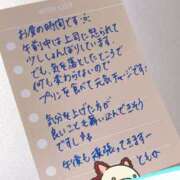 お昼の時間です
午前中は上司に怒られて
少ししょんぼりしています。
でも、気を落としたところで
何も変わらないので
プリンを食べて元気チャージです
気分を上げた方が
良いことも舞い込んできそう
ですしね
午後も頑張ってきますー